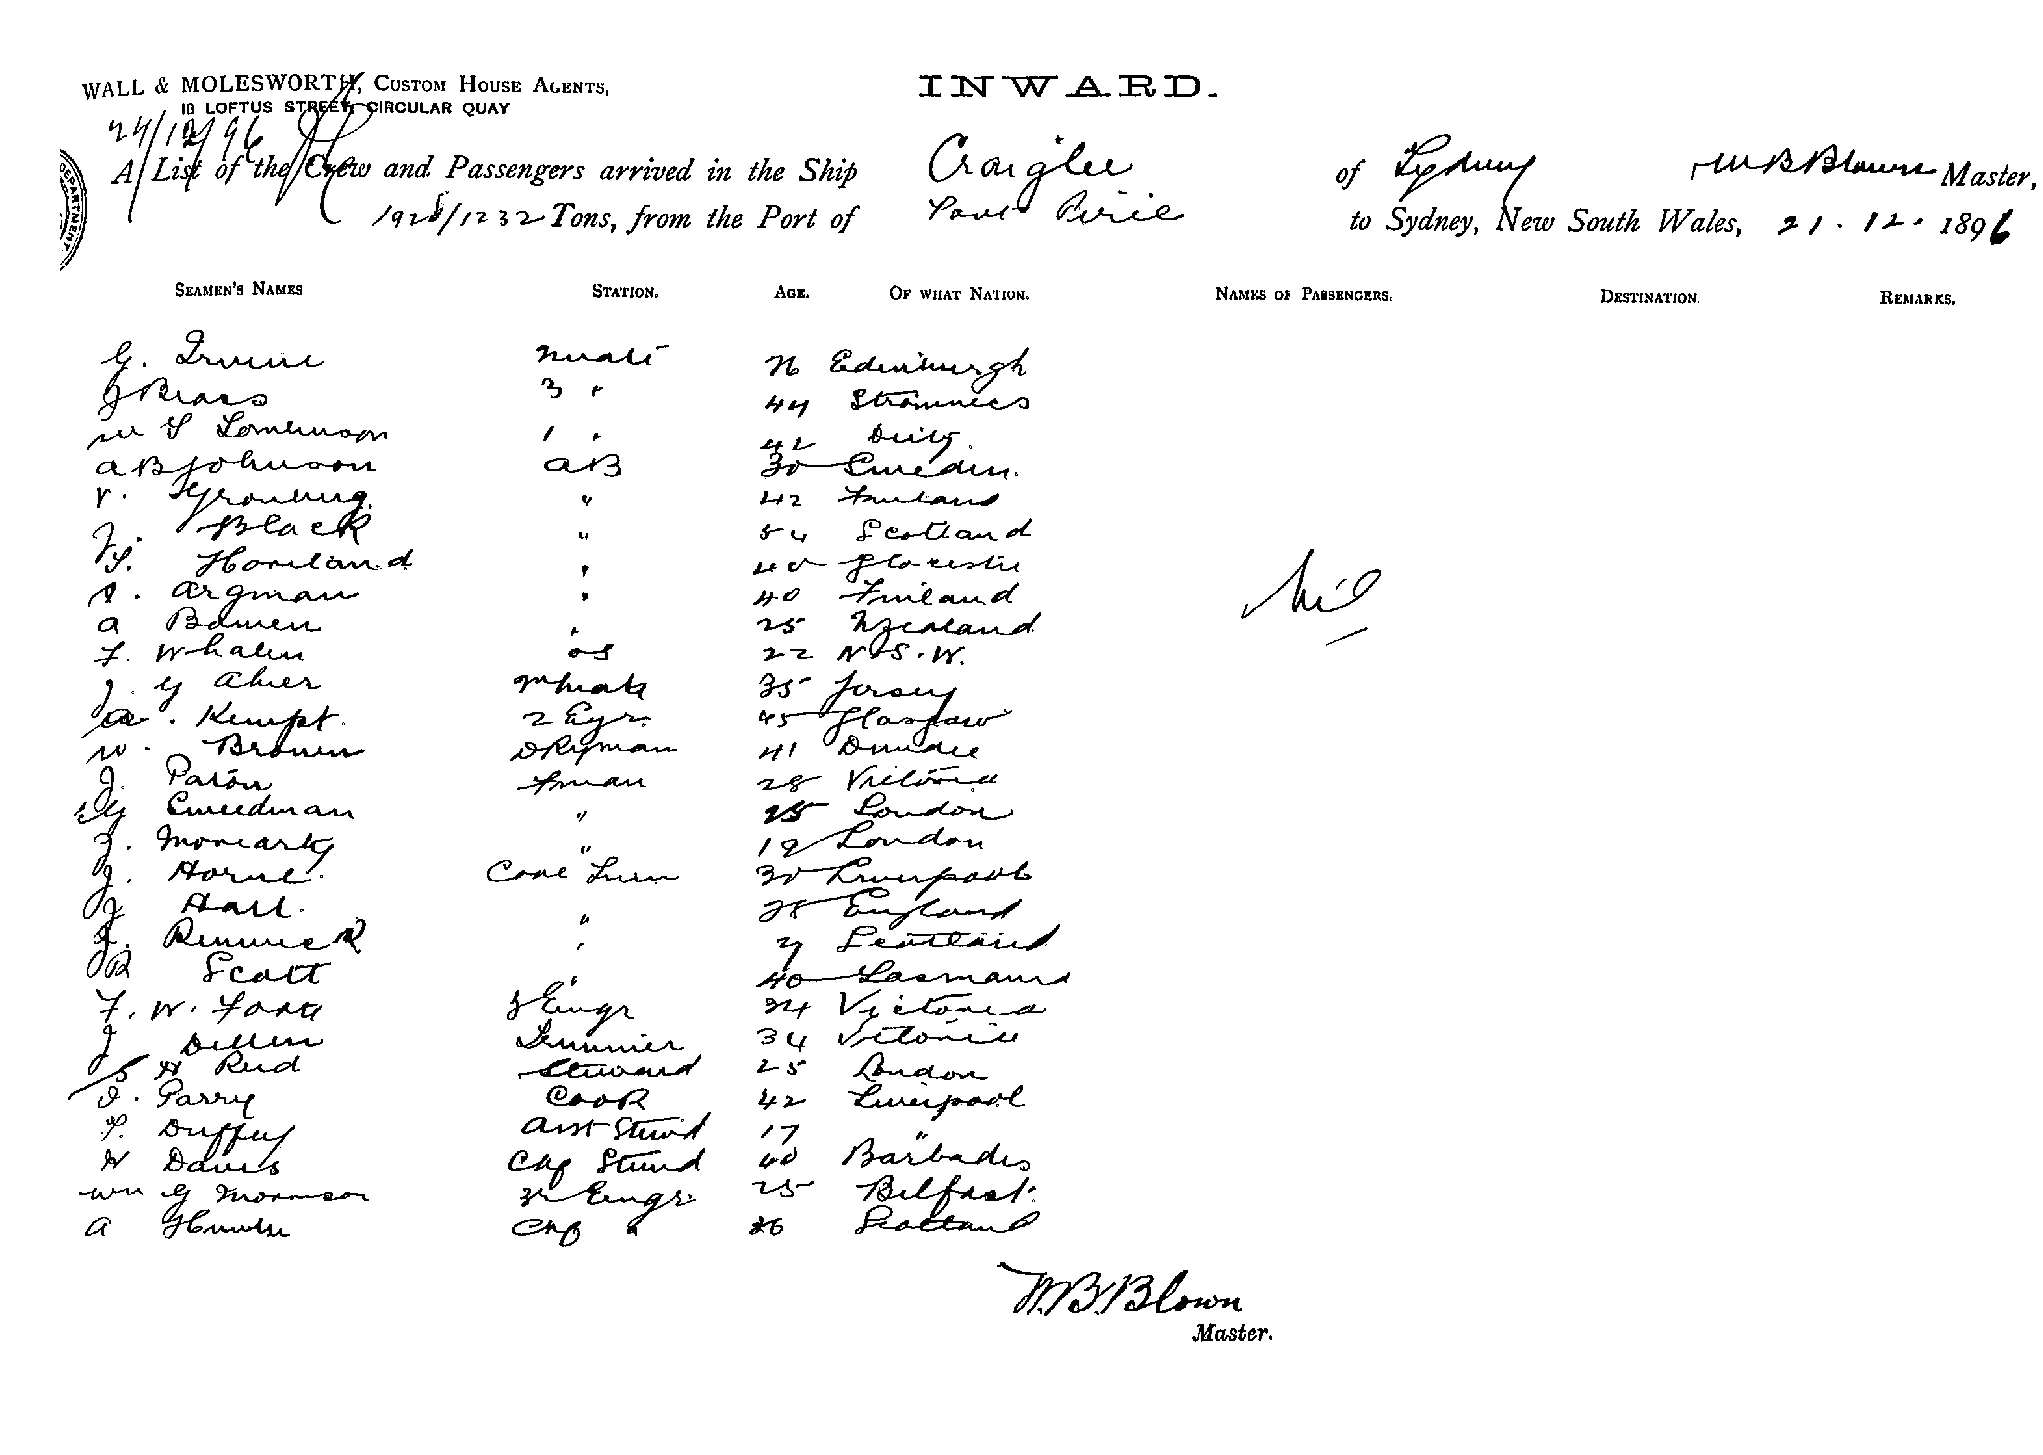 WALL & MOLESWORTH, CUSTOM HOUSE AGENTS,
INWARD.
18 LOFTUS STREET, CIRCULAR QUAY
24/12/96
DEPARTMENT
A List of the Crew and Passengers arrived in the Ship Craiglee of Sydney W B Blown Master,
1928/1232 Tons, from the Port of Port Pirie to Sydney, New South Wales, 21. 12. 1896
SEAMEN'S NAMES STATION. AGE. OF WHAT NATION. NAMES OF PASSENGERS. DESTINATION. REMARKS.
G. Irvine Edinburgh
J Brass 3 " 44 Stromness
W S Tomlinson 1 " 42
A B Johnson AB 30 Sweden.
" 42 Finland
J. Black " 54 Scotland
Hoveland " 40
Argman " 40 Finland
A Bowen " 25 N Zealand
F. Whalen OS 22 N.S.W.
J. G Ahier 35 Jersey
A. Kempt. 2 Egr. 45 Glasgow
W. Brown DKyman 41 Dundee
J. Paton Fman 28 Victoria
Sweedman " 25 London
J. Moriarty " 19 London
J. Horne. 30 Liverpool
J Hall. " 28 England
J. Renwick " Scotland
R Scott " 40 Tasmania
F. W. Foote 3 Engr 24 Victoria
J Dillon Trimmer 34 Victoria
S H Reid Steward 25 London
Parry Cook 42 Liverpool
T. Duffy Asst Stewd 17 "
H Davis Chf Stewd 40 Barbados
Wm G Morrison 2r Engr 25 Belfast.
A Hunter Chf " 36 Scotland
Nil
W.B. Blown
Master.